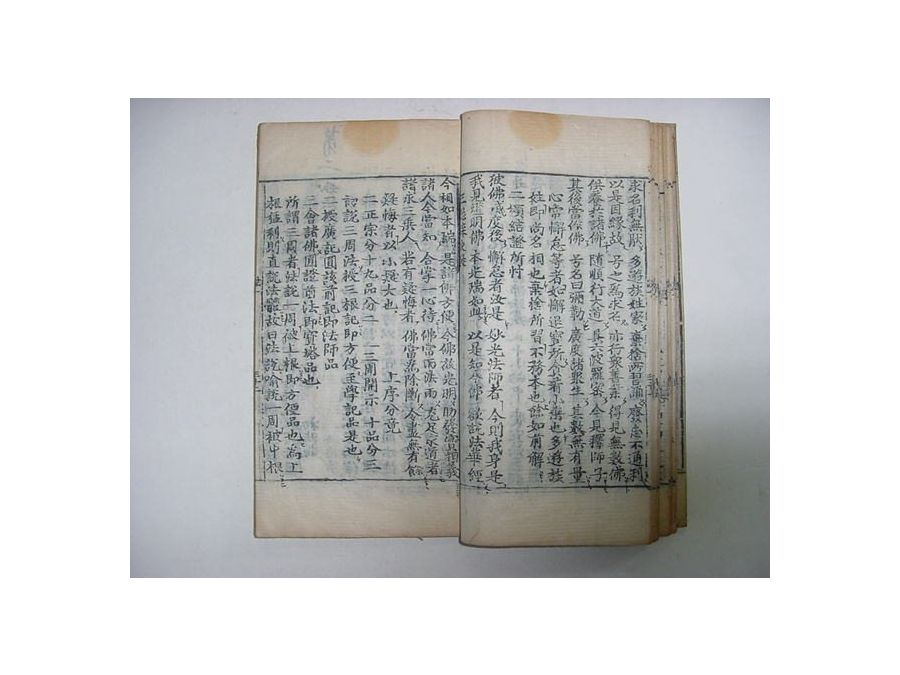 求名利無厭多遊族姓家棄捨所習誦廢忘不通利
以是因緣故号之爲求名亦行衆善業得見無數佛
供養於諸佛隨順行大道具六波羅密今見釋師子
其後當作佛号名曰彌勒廣度諸衆生其數無有量
心常懈怠等者如懈退
也多遊族
姓即尚名相也棄捨所習不務本也餘如前解
二頌結證所忖
彼佛滅度後懈怠者汝是妙光法師者今則我身是
我見燈明佛本光瑞如此以是知今佛欲說法華經
今相如本瑞是諸佛方便今佛放光明助發實相義
諸人今當知合掌一心待佛當雨法雨充足求道者
諸求三乘人若有疑悔者佛當爲除斷令盡無有餘
疑悔者以小疑大也 上序分竟
二正宗分十九品分二一三周開示十品分三
初說三周法授三根記即方便至學記品是也
二授廣記圓該前記即法師品
三會諸佛圓證前法即寶塔品也
所謂三周者法說一周被上根即方便品也爲上
根猛利則直說法體故曰法說喻說一周被中根